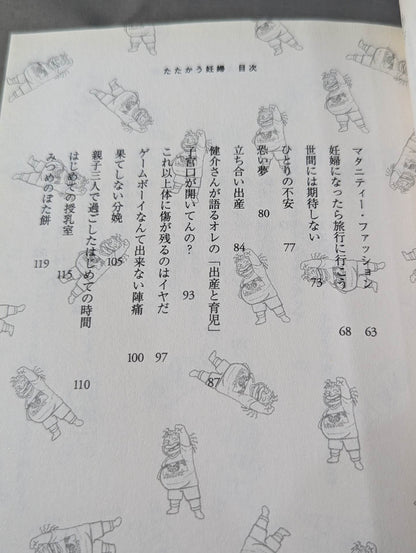 たたかう妊婦 目次
マタニティー・ファッション 63
妊婦になったら旅行に行こう 68
世間には期待しない 73
ひとりの不安 77
恐い夢 80
立ち合い出産 84
健介さんが語るオレの「出産と育児」 87
子宮口が開いてんの? 93
これ以上体に傷が残るのはイヤだ 97
ゲームボーイなんて出来ない陣痛 100
果てしない分娩 105
親子三人で過ごしたはじめての時間 110
はじめての授乳室 115
みつめのぼた餅 119